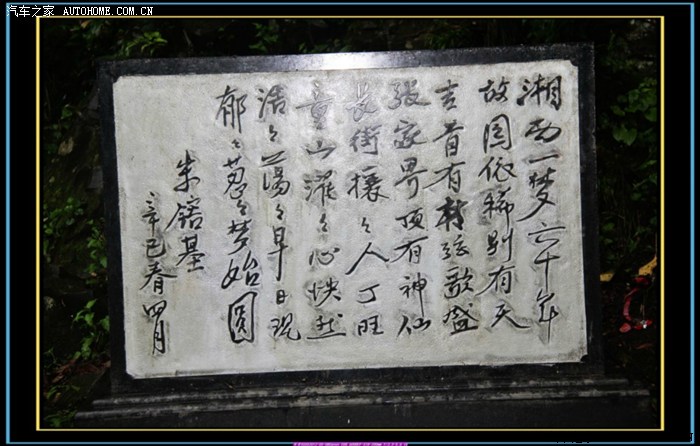 汽车之家 AUTOHOME.COM.CN
湘西一梦六十年
故园依稀别有天
吉首有材弦歌盛
张家界顶有神仙
长街攘々人丁旺
童山濯々心怏然
浩々荡々早日现
郁々葱々梦始圆
朱镕基
辛巳春四月